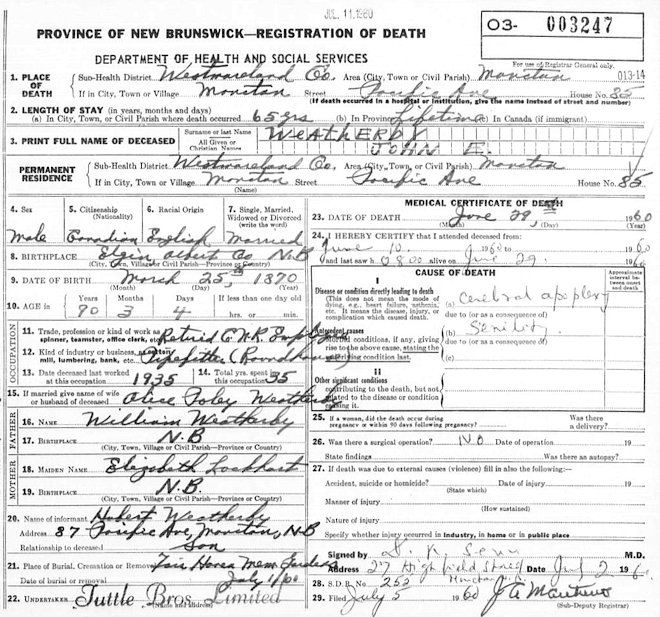 JUL 11 1960
PROVINCE OF NEW BRUNSWICK—REGISTRATION OF DEATH
03- 003247
DEPARTMENT OF HEALTH AND SOCIAL SERVICES
For use of Registrar General only.
1. PLACE OF DEATH Sub-Health District Westmoreland Co. Area (City, Town or Civil Parish) Moncton 013-14
If in City, Town or Village Moncton Street Pacific Ave House No. 85
(If death occurred in a hospital or institution, give the name instead of street and number)
2. LENGTH OF STAY (in years, months and days)
(a) In City, Town or Civil Parish where death occurred 65 yrs (b) In Province Lifetime (c) In Canada (if immigrant)
3. PRINT FULL NAME OF DECEASED Surname or last Name WEATHERBY
All Given or Christian Names JOHN E.
PERMANENT RESIDENCE Sub-Health District Westmoreland Co. Area (City, Town or Civil Parish) Moncton
If in City, Town or Village Moncton Street Pacific Ave House No. 85
(Name)
4. Sex 5. Citizenship (Nationality) 6. Racial Origin 7. Single, Married, Widowed or Divorced (write the word)
Male Canadian English Married
8. BIRTHPLACE Elgin, Albert Co N.B
(City, Town, Village or Civil Parish—Province or Country)
9. DATE OF BIRTH March 25th 1870
(Month) (Day) (Year)
10. AGE in Years Months Days If less than one day
90 3 4 hrs. or min.
OCCUPATION
11. Trade, profession or kind of work as spinner, teamster, office clerk, etc. Retired C.N.R. Employee
12. Kind of industry or business, as cotton mill, lumbering, bank, etc. Pipefitter (Roundhouse)
13. Date deceased last worked at this occupation 1935 14. Total yrs. spent in this occupation 35
15. If married give name of wife or husband of deceased Alice Foley Weatherby
FATHER
16. NAME William Weatherby
17. BIRTHPLACE N.B
(City, Town or Civil Parish—Province or Country)
MOTHER
18. MAIDEN NAME Elizabeth Lockhart
19. BIRTHPLACE N.B.
(City, Town or Civil Parish—Province or Country)
20. Name of informant Hubert Weatherby
Address 87 Pacific Ave, Moncton, N.B
Relationship to deceased Son
21. Place of Burial, Cremation or Removal Fair Haven Mem. Gardens
Date of burial or removal July 1/60
22. UNDERTAKER Tuttle Bros. Limited
(Name and address)
MEDICAL CERTIFICATE OF DEATH
23. DATE OF DEATH June 29th 1960
(Month) (Day)
24. I HEREBY CERTIFY that I attended deceased from:
June 10 1960 to 1960
and last saw h alive on June 29 1960
CAUSE OF DEATH
Approximate interval between onset and death
Disease or condition directly leading to death
(This does not mean the mode of dying, e.g., heart failure, asthenia, etc. It means the disease, injury or complication which caused death.
(a) Cerebral apoplexy
due to (or as a consequence of)
Antecedent causes
Morbid conditions, if any, giving rise to the above cause, stating the underlying condition last.
(b) Senility.
due to (or as a consequence of)
(c)
II
Other significant conditions
contributing to the death, but not related to the disease or condition causing it.
25. If a woman, did the death occur during pregnancy or within 90 days following pregnancy? Was there a delivery?
26. Was there a surgical operation? NO Date of operation 19
State findings Was there an autopsy?
27. If death was due to external causes (violence) fill in also the following:—
Accident, suicide or homicide? Date of injury 19
(State which)
Manner of injury
(How sustained)
Nature of injury
Specify whether injury occurred in industry, in home or in public place
Signed by M.D.
Address 27 Highfield Street Date July 2 1960
Moncton
28. S.D.R. No. 252
29. Filed July 5 1960
(Sub-Deputy Registrar)